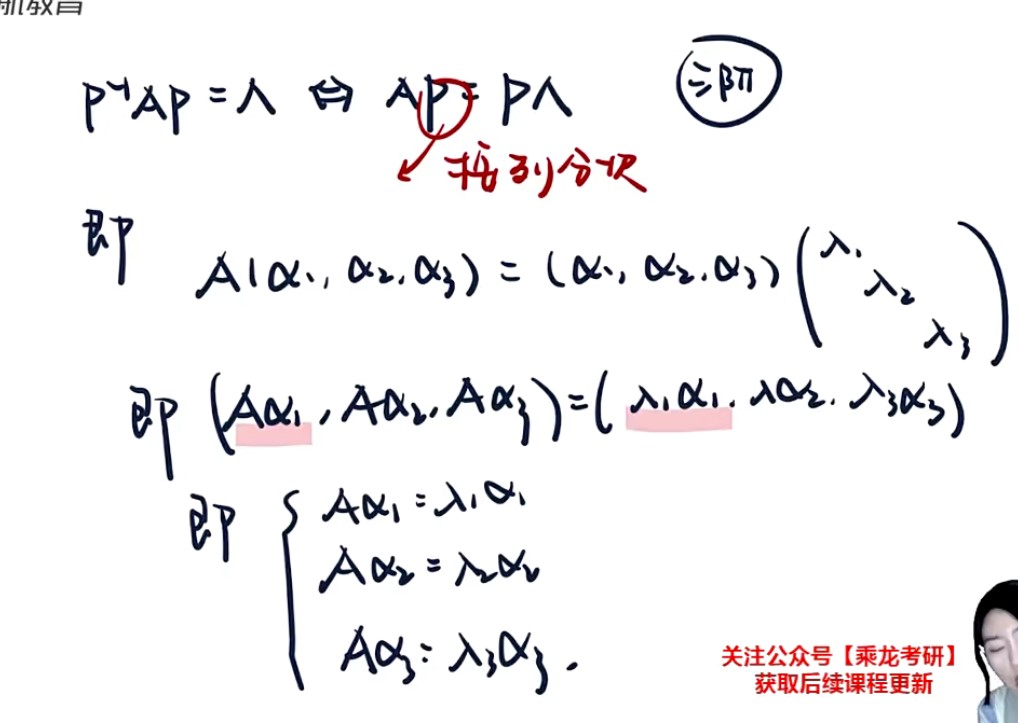 机教育
P⁻¹AP = Λ ⇔ AP = PΛ 三阶
按列分块
即 A(α₁, α₂, α₃) = (α₁, α₂, α₃) (λ₁ λ₂ λ₃)
即 (Aα₁, Aα₂, Aα₃) = (λ₁α₁, λα₂, λ₃α₃)
即 { Aα₁ = λ₁α₁
Aα₂ = λ₂α₂
Aα₃ = λ₃α₃.
关注公众号【乘龙考研】
获取后续课程更新